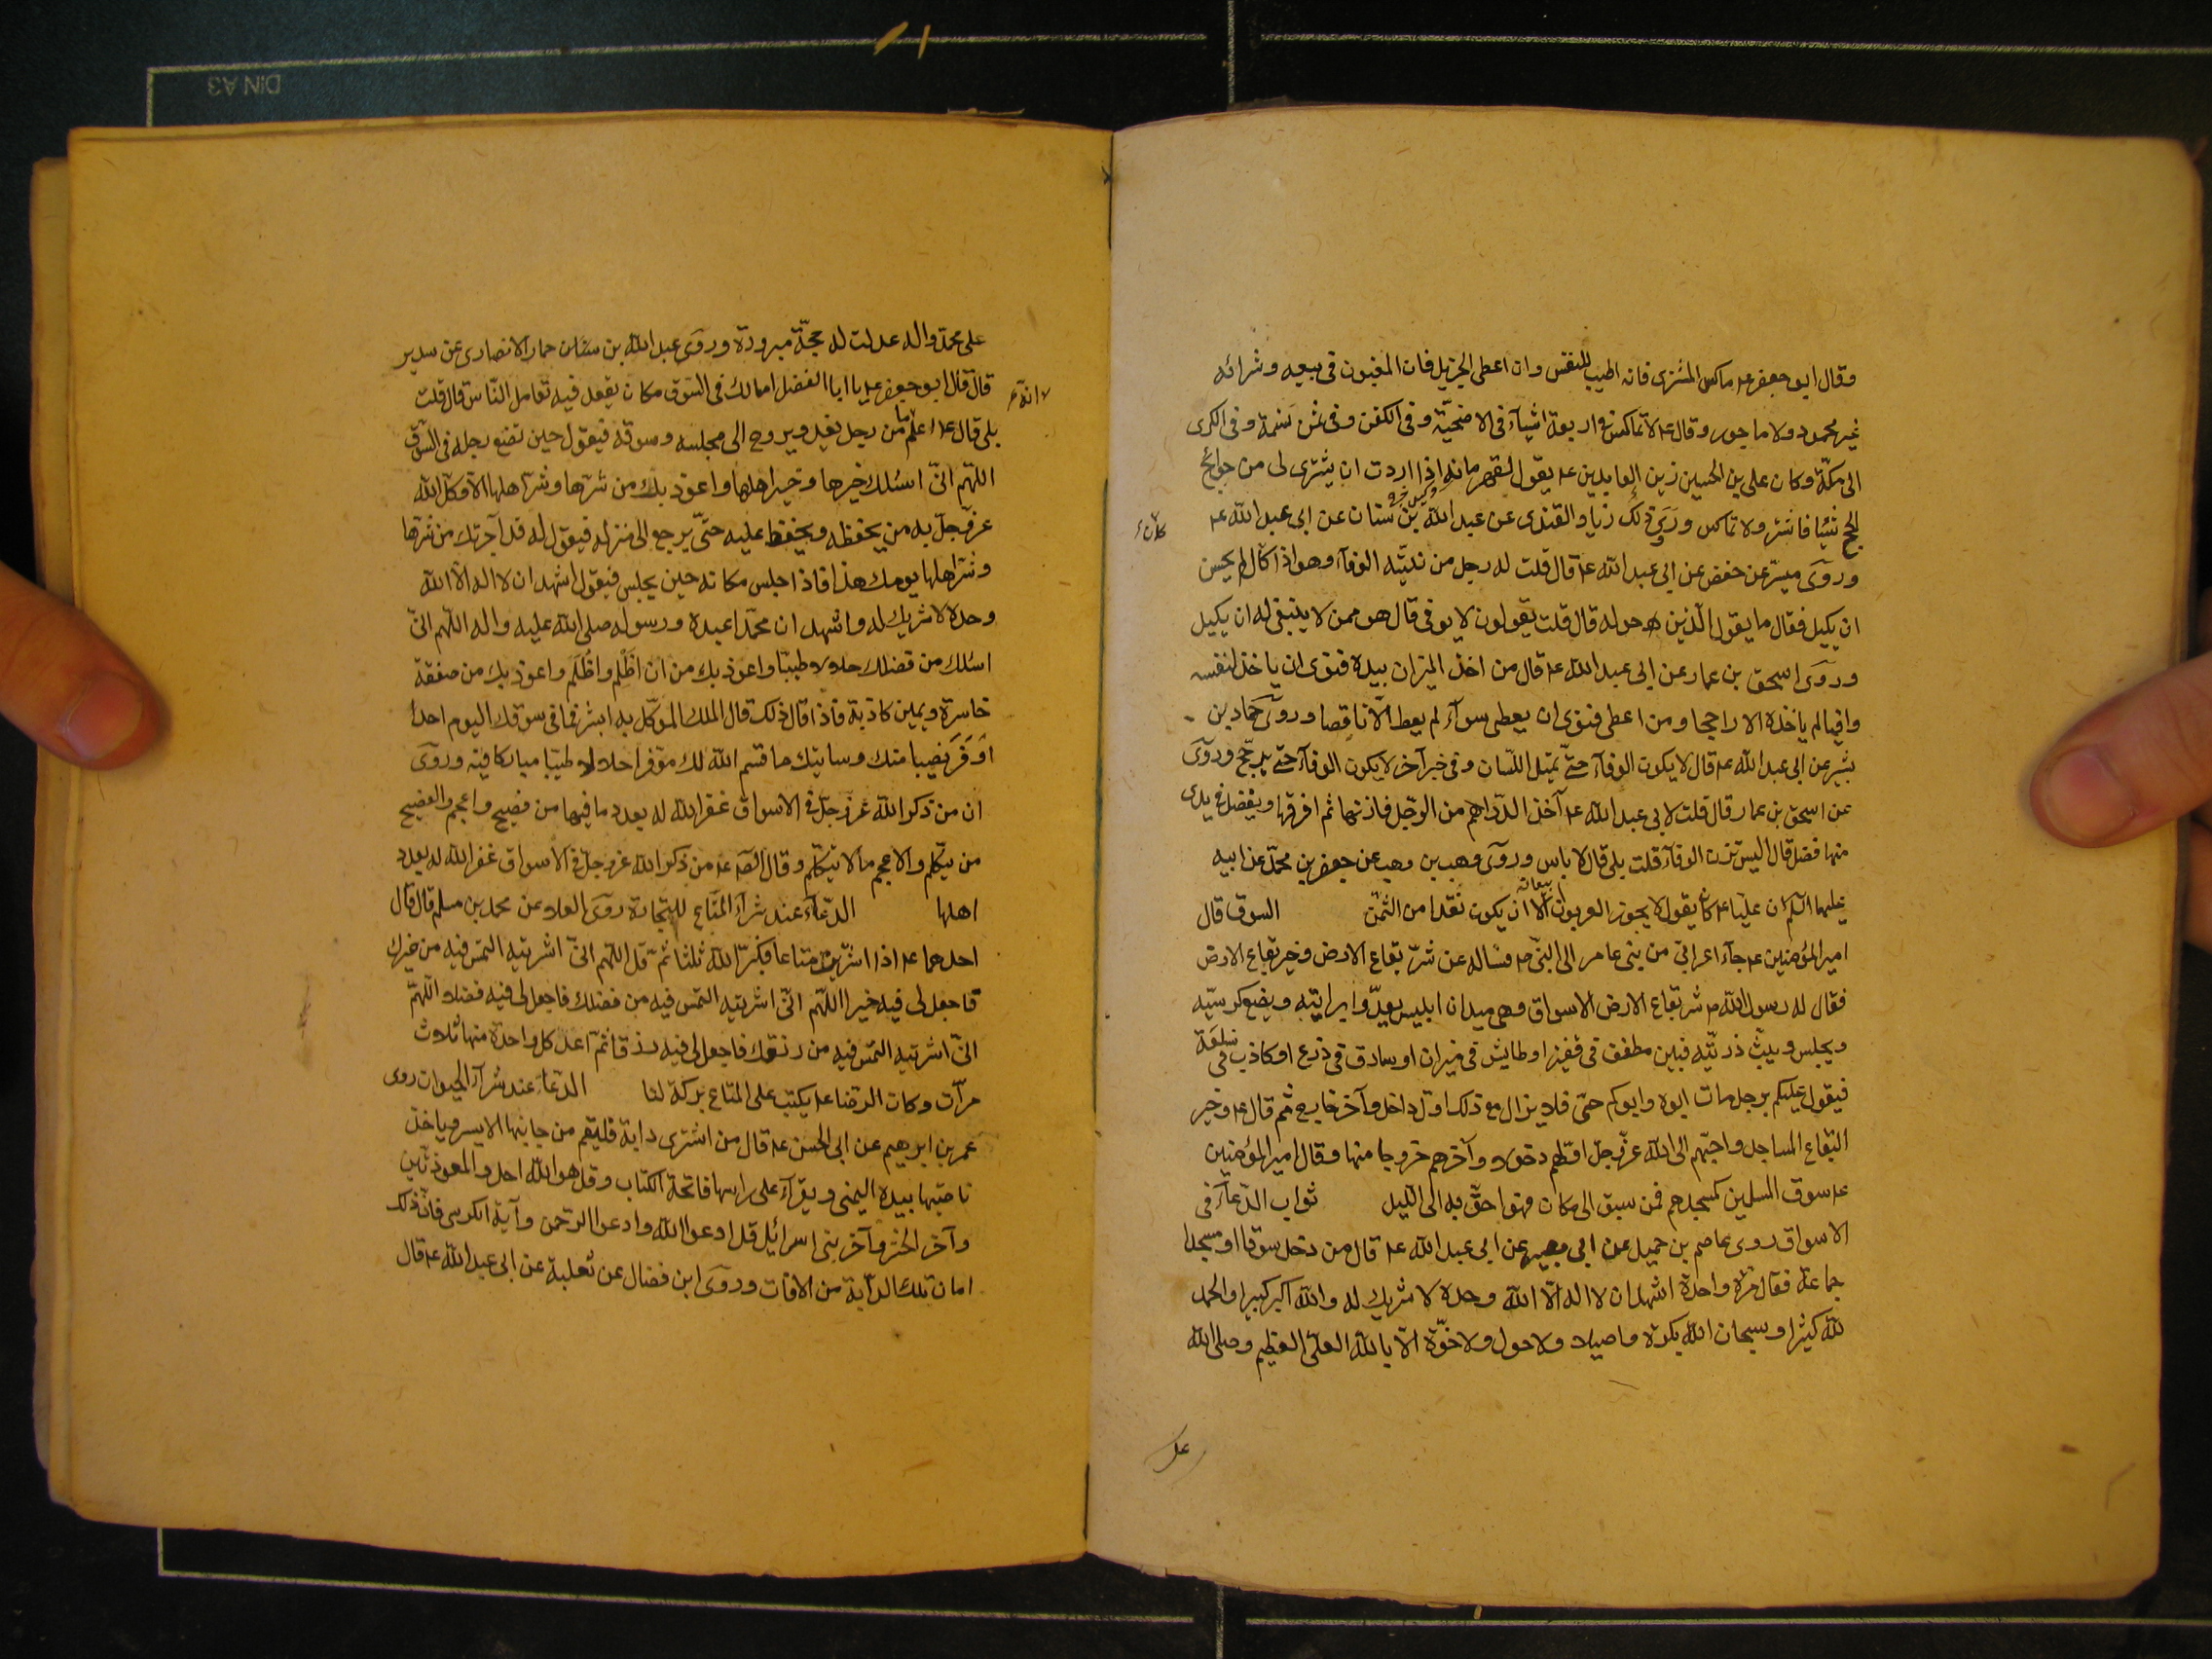 وقال ابو جعفر ع ماكس المشترى فانه اطيب للنفس وان اعطى الجزيل فان المغبون فى بيعه وشرائه
غير محمود ولا ماجور وقال ع لا تماكس فى اربعة اشياء فى الاضحية وفى الكفن وفى ثمن نسمة وفى الكرى
الى مكة وكان على بن الحسين زين العابدين ع يقول لقهرمانه اذا اردت ان يشترى لى من حوائج
الحج شيئا فاشتر ولا تماكس وروى ذلك زياد القندى عن عبد الله بن سنان عن ابى عبد الله ع
وروى ميسر عن حفص عن ابى عبد الله ع قال قلت له رجل من نيته الوفآء وهو اذا كال لم يحسن
ان يكيل فقال ما يقول الذين حوله قال قلت يقولون لا يوفى قال هو ممن لا ينبغى له ان يكيل
وروى اسحق بن عمار عن ابى عبد الله ع قال من اخذ الميزان بيده فنوى ان ياخذ لنفسه
وافيا لم ياخذه الا راجحا ومن اعطى فنوى ان يعطى سوآء لم يعط الا ناقصا وروى حماد بن
بشير عن ابى عبد الله ع قال لا يكون الوفآء حتى يميل اللسان وفى خبر آخر لا يكون الوفآء حتى يرجح وروى
عن اسحق بن عمار قال قلت لابى عبد الله ع آخذ الدراهم من الرجل فازنها ثم افرقها ويفضل فى يدى
منها فضل قال اليس تزن الوفآء قلت بلى قال لا باس وروى وهب بن وهب عن جعفر بن محمد عن ابيه
عليهما السلم ان عليا ع كان يقول لا يجوز العربون الا ان يكون نقدا من الثمن السوق قال
امير المؤمنين ع جاء اعرابى من بنى عامر الى النبى ص فساله عن شر بقاع الارض وخير بقاع الارض
فقال له رسول الله ص شر بقاع الارض الاسواق وهى ميدان ابليس يغدو برايته ويضع كرسيه
ويجلس ويبث ذريته فبين مطفف فى قفيز او طايش فى ميزان او سارق فى ذرع او كاذب فى سلعة
فيقول عليكم برجل مات ابوه وابوكم حى فلا يزال مع ذلك اول داخل وآخر خارج ثم قال ع وخير
البقاع المساجد واحبهم الى الله عز وجل اولهم دخولا وآخرهم خروجا منها وقال امير المؤمنين
ع سوق المسلمين كمسجدهم فمن سبق الى مكان فهو احق به الى الليل ثواب الدعآء فى
الاسواق روى عاصم بن حميد عن ابى بصير عن ابى عبد الله ع قال من دخل سوقا او مسجد
جماعة فقال مرة واحدة اشهد ان لا اله الا الله وحده لا شريك له والله اكبر كبيرا والحمد
لله كثيرا وسبحان الله بكرة واصيلا ولا حول ولا قوة الا بالله العلى العظيم وصلى الله
على
على محمد واله عدلت له حجة مبرورة وروى عبد الله بن حماد الانصارى عن سدير
قال قال ابو جعفر ع يا ابا الفضل اما لك فى السوق مكان يقعد فيه تعامل الناس قال قلت
بلى قال ع اعلم ما من رجل يغدو ويروح الى مجلسه وسوقه فيقول حين تضع رجله فى السوق
اللهم انى اسئلك خيرها وخير اهلها واعوذ بك من شرها وشر اهلها الا وكل الله
عز وجل به من يحفظه ويحفظ عليه حتى يرجع الى منزله فيقول له قد آجرتك من شرها
وشر اهلها يومك هذا فاذا جلس مكانه حين يجلس فيقول اشهد ان لا اله الا الله
وحده لا شريك له واشهد ان محمدا عبده ورسوله صلى الله عليه واله اللهم انى
اسئلك من فضلك حلالا طيبا واعوذ بك من ان اظلم واظلم واعوذ بك من صفقة
خاسرة ويمين كاذبة فاذا قال ذلك قال الملك الموكل به ابشر فما فى سوقك اليوم احد
اوفر نصيبا منك وسياتيك ما قسم الله لك موفرا حلالا طيبا مباركا فيه وروى
ان من ذكر الله عز وجل فى الاسواق غفر الله له بعدد ما فيها من فصيح واعجم والفصيح
من يتكلم والاعجم ما لا يتكلم وقال الصه ع من ذكر الله عز وجل فى الاسواق غفر الله له بعدد
اهلها الدعآء عند شرآء المتاع للتجارة روى العلا عن محمد بن مسلم قال قال
احدهما ع اذا اشتريت متاعا فكبر الله ثلثا ثم قل اللهم انى اشتريته التمس فيه من خيرك
فاجعل لى فيه خيرا اللهم انى اشتريته التمس فيه من فضلك فاجعل لى فيه فضلا اللهم
انى اشتريته التمس فيه من رزقك فاجعل لى فيه رزقا ثم اعد كل واحدة منها ثلاث
مرآت وكان الرضا ع يكتب على المتاع بركة لنا الدعاء عند شرآء الحيوان روى
عمر بن ابرهيم عن ابى الحسن ع قال من اشترى دابة فليقم من جانبها الايسر وياخذ
ناصيتها بيده اليمنى ويقرآء على راسها فاتحة الكتاب وقل هو الله احد والمعوذتين
وآخر الحشر وآخر بنى اسرائيل قل ادعوا الله وادعوا الرحمن وآية الكرسى فان ذلك
امان تلك الدابة من الافات وروى ابن فضال عن ثعلبة عن ابى عبد الله ع قال